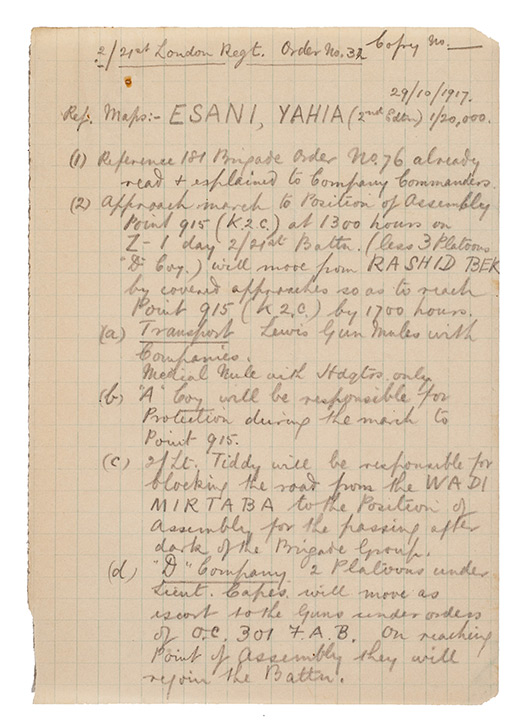 2/21st London Regt. Order No. 32 Copy No. —
29/10/1917.
Ref. Maps:- ESANI, YAHIA (2nd Edtn) 1/20,000.
(1) Reference 181 Brigade Order No. 76 already
read + explained to Company Commanders.
(2) Approach march to Position of Assembly
Point 915 (K2c.) at 1300 hours on
Z-1 day 2/21st Battn. (less 3 Platoons
"D" Coy.) will move from RASHID BEK
by covered approaches so as to reach
Point 915 (K2c.) by 1700 hours.
(a) Transport Lewis Gun Mules with
Companies.
Medial Mule with Hdqtrs. only
(b) "A" Coy will be responsible for
Protection during the march to
Point 915.
(c) 2/Lt. Tiddy will be responsible for
blocking the road from the WADI
MIRTABA to the Position of
Assembly for the passing after
dark of the Brigade Group.
(d) "D" Company 2 Platoons under
Lieut. Capes will move as
escort to the Guns under orders
of O.C. 301 F.A.B. On reaching
Point of Assembly they will
rejoin the Battn.